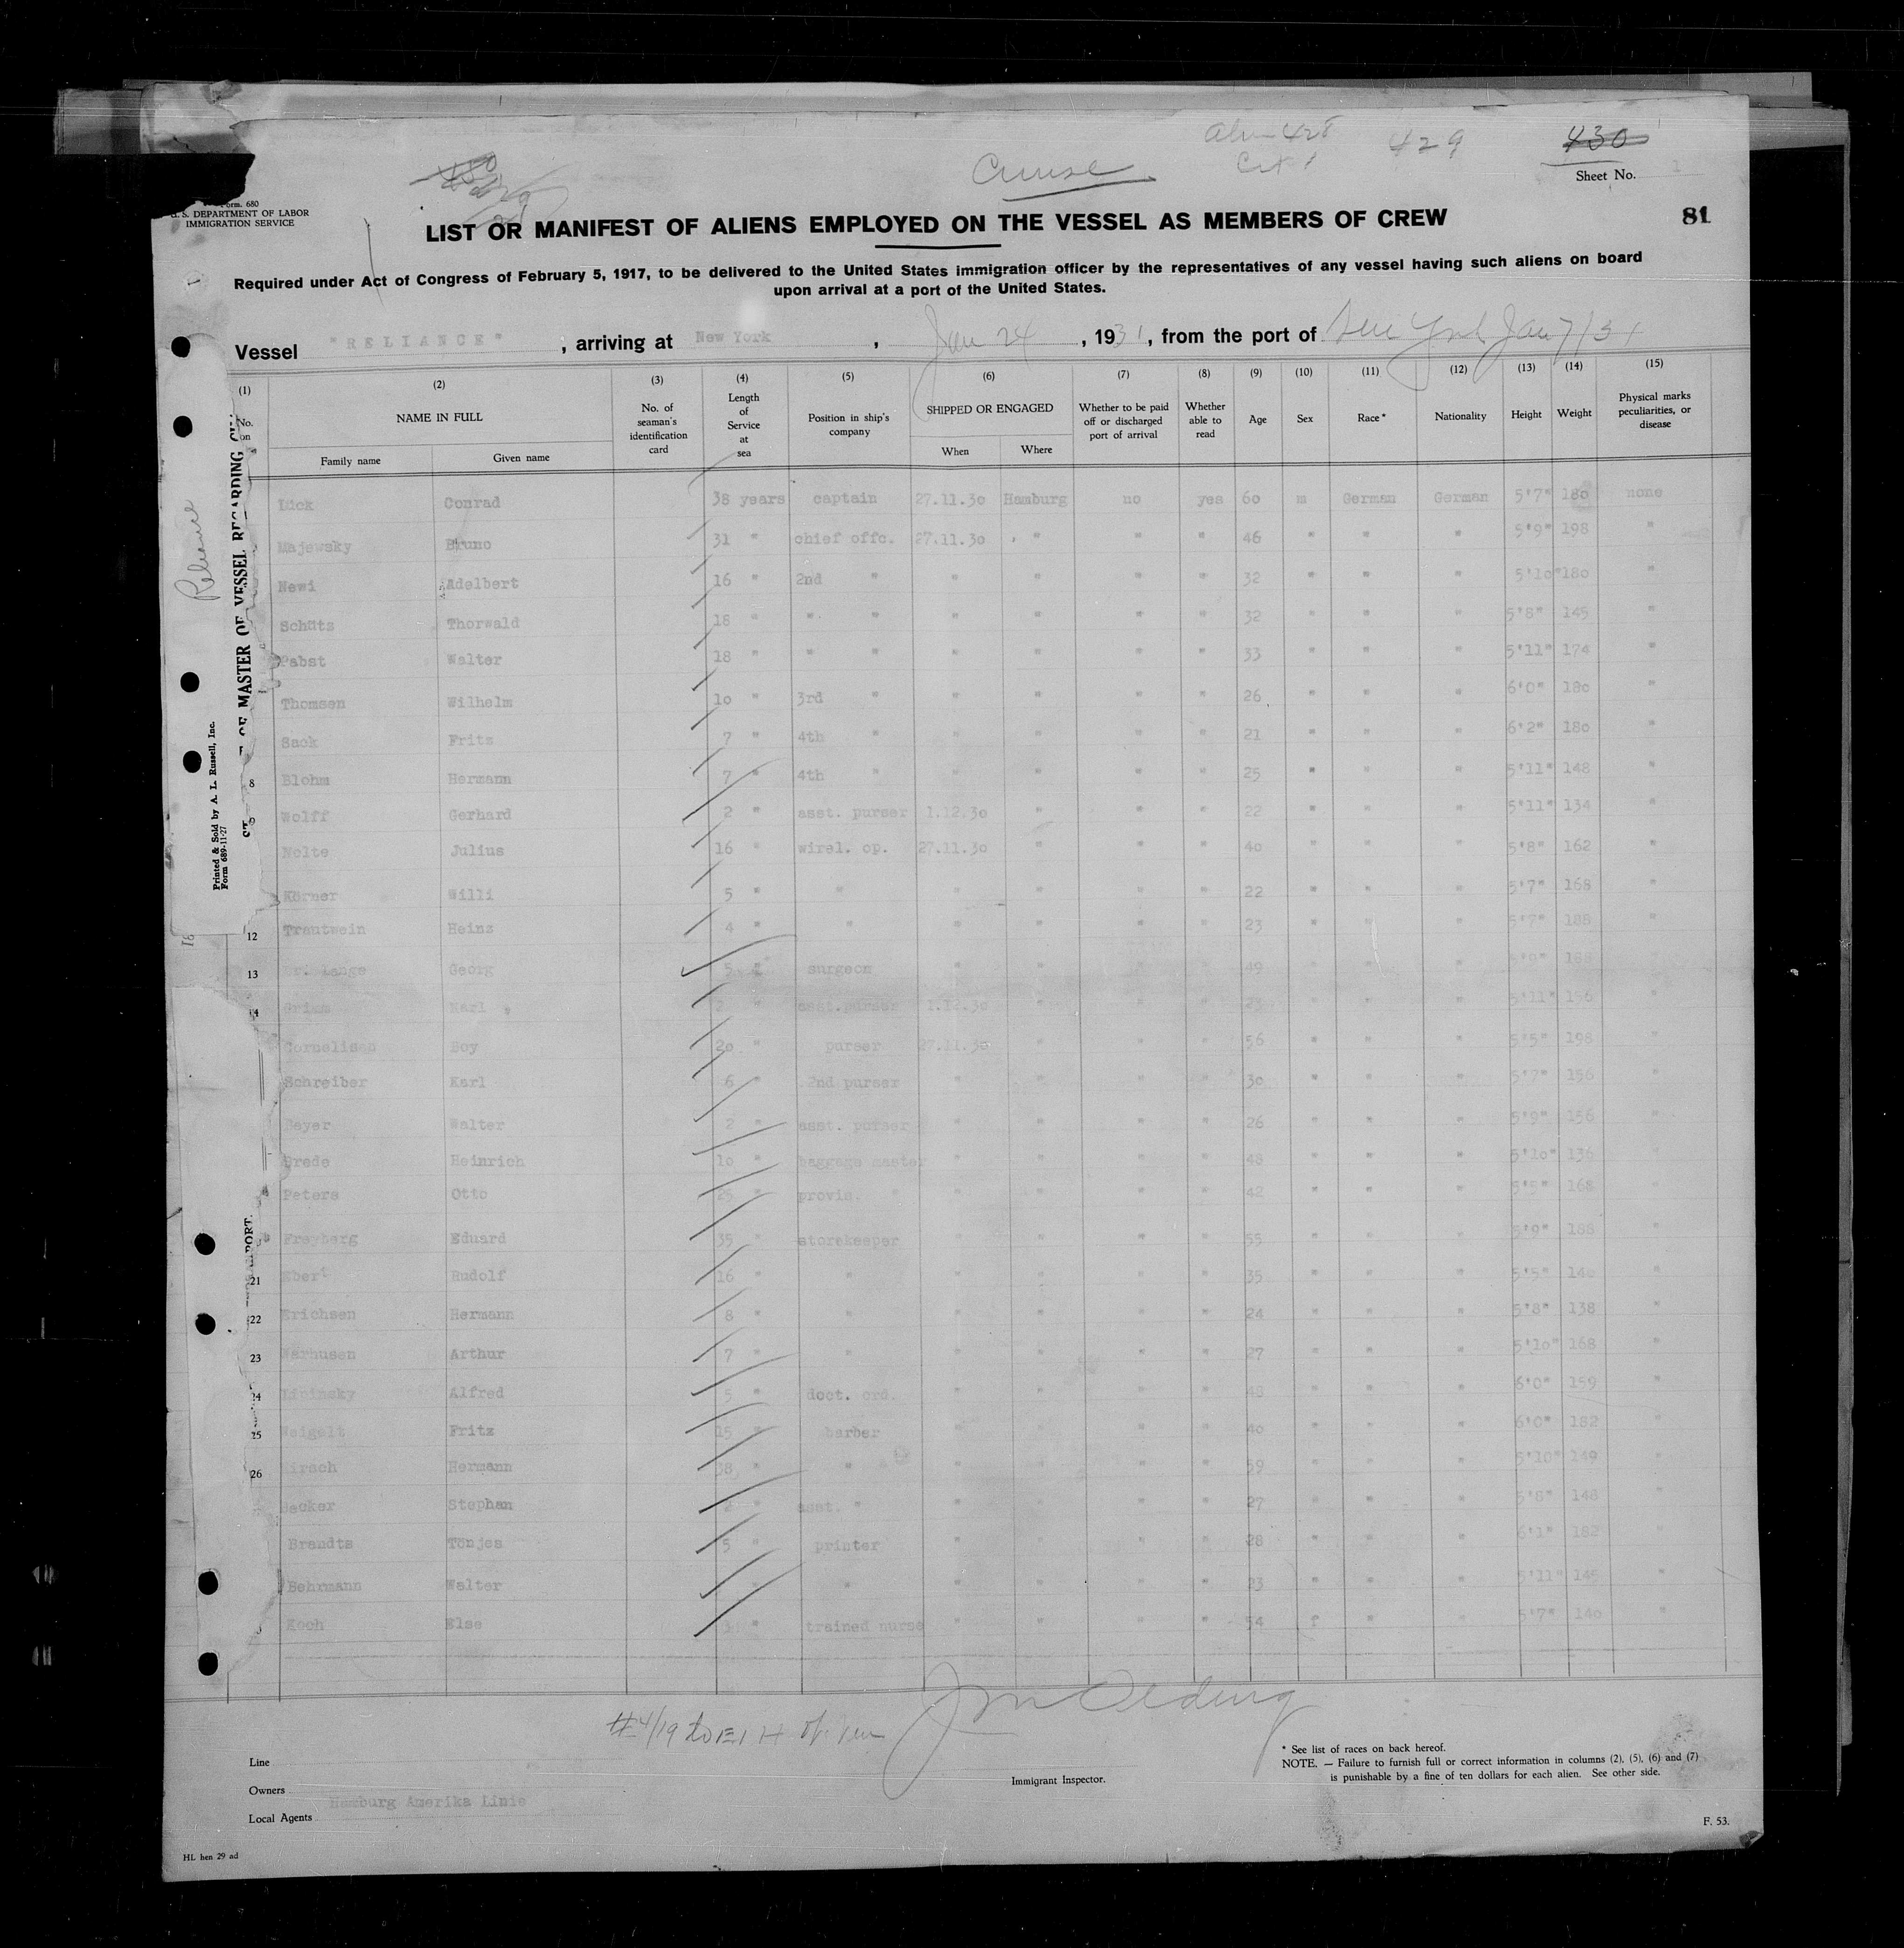 Alien 428
429
430
Cruise
Sheet No. 1
Form. 680
U. S. DEPARTMENT OF LABOR
IMMIGRATION SERVICE
LIST OR MANIFEST OF ALIENS EMPLOYED ON THE VESSEL AS MEMBERS OF CREW
81
Required under Act of Congress of February 5, 1917, to be delivered to the United States immigration officer by the representatives of any vessel having such aliens on board
upon arrival at a port of the United States.
Vessel "RELIANCE", arriving at New York, Jan 24, 1931, from the port of New York Jan 7/31
(1) (2) (3) (4) (5) (6) (7) (8) (9) (10) (11) (12) (13) (14) (15)
No. on NAME IN FULL No. of seaman's identification card Length of Service at sea Position in ship's company SHIPPED OR ENGAGED Whether to be paid off or discharged port of arrival Whether able to read Age Sex Race* Nationality Height Weight Physical marks peculiarities, or disease
Family name Given name When Where
Lück Conrad 38 years captain 27.11.30 Hamburg no yes 60 m German German 5'7" 180 none
Majewsky Bruno 31 " chief offc. 27.11.30 " " " 46 " " " 5'9" 198 "
Newi Adelbert 16 " 2nd " " " " " 32 " " " 5'10" 180 "
Schüts Thorwald 18 " " " " " " " 32 " " " 5'8" 145 "
Pabst Walter 18 " " " " " " " 33 " " " 5'11" 174 "
Thomsen Wilhelm 10 " 3rd " " " " " 26 " " " 6'0" 180 "
Sack Frits 7 " 4th " " " " " 21 " " " 6'2" 180 "
8 Blohm Hermann 7 " 4th " " " " " 25 " " " 5'11" 148 "
Wolff Gerhard 2 " asst. purser 1.12.30 " " " 22 " " " 5'11" 134 "
Nolte Julius 16 " wirel. op. 27.11.30 " " " 40 " " " 5'8" 162 "
Körner Willi 5 " " " " " " 22 " " " 5'7" 168 "
12 Trautwein Heinz 4 " " " " " " 23 " " " 5'7" 188 "
13 Dr. Lange Georg 5 " surgeon " " " " 49 " " " 5'9" "
14 Grimm Karl 2 " asst.purser 1.12.30 " " " 23 " " " 5'11" 156 "
Cornelisen Boy 20 " purser 27.11.30 " " " 56 " " " 5'5" 198 "
Schreiber Karl 6 " 2nd purser " " " " 30 " " " 5'7" 156 "
Bayer Walter 2 " asst. purser " " " " 26 " " " 5'9" 156 "
Brede Heinrich 10 " baggage master " " " " 48 " " " 5'10" 136 "
Peters Otto 25 " provis. " " " " " 42 " " " 5'5" 168 "
Freyberg Eduard 35 " storekeeper " " " " 55 " " " 5'9" 188 "
21 Ebert Rudolf 16 " " " " " " 35 " " " 5'5" "
22 Erichsen Hermann 8 " " " " " " 24 " " " 5'8" 138 "
23 Warhusen Arthur 7 " " " " " " 27 " " " 5'10" 168 "
24 Lipinsky Alfred 5 " doct. ord. " " " " 43 " " " 6'0" 159 "
25 Weigelt Fritz 15 " barber " " " " 40 " " " 6'0" 182 "
26 Hirsch Hermann 38 " " " " " " 59 " " " 5'10" 149 "
Becker Stephan " asst. " " " " " 27 " " " 5'8" 148 "
Brandts Tönjes 5 " printer " " " " 28 " " " 6'1" 182 "
Behrmann Walter " " " " " " 23 " " " 5'11" 145 "
Koch Else " trained nurse " " " " 54 f " " 5'7" 140 "
Reliance
OF MASTER OF VESSEL REGARDING
Printed & Sold by A. L. Russell, Inc.
Form 689-11-27
PORT.
Line
Owners
Hamburg Amerika Linie
Local Agents
Immigrant Inspector.
* See list of races on back hereof.
NOTE. — Failure to furnish full or correct information in columns (2), (5), (6) and (7)
is punishable by a fine of ten dollars for each alien. See other side.
F. 53.
HL hen 29 ad